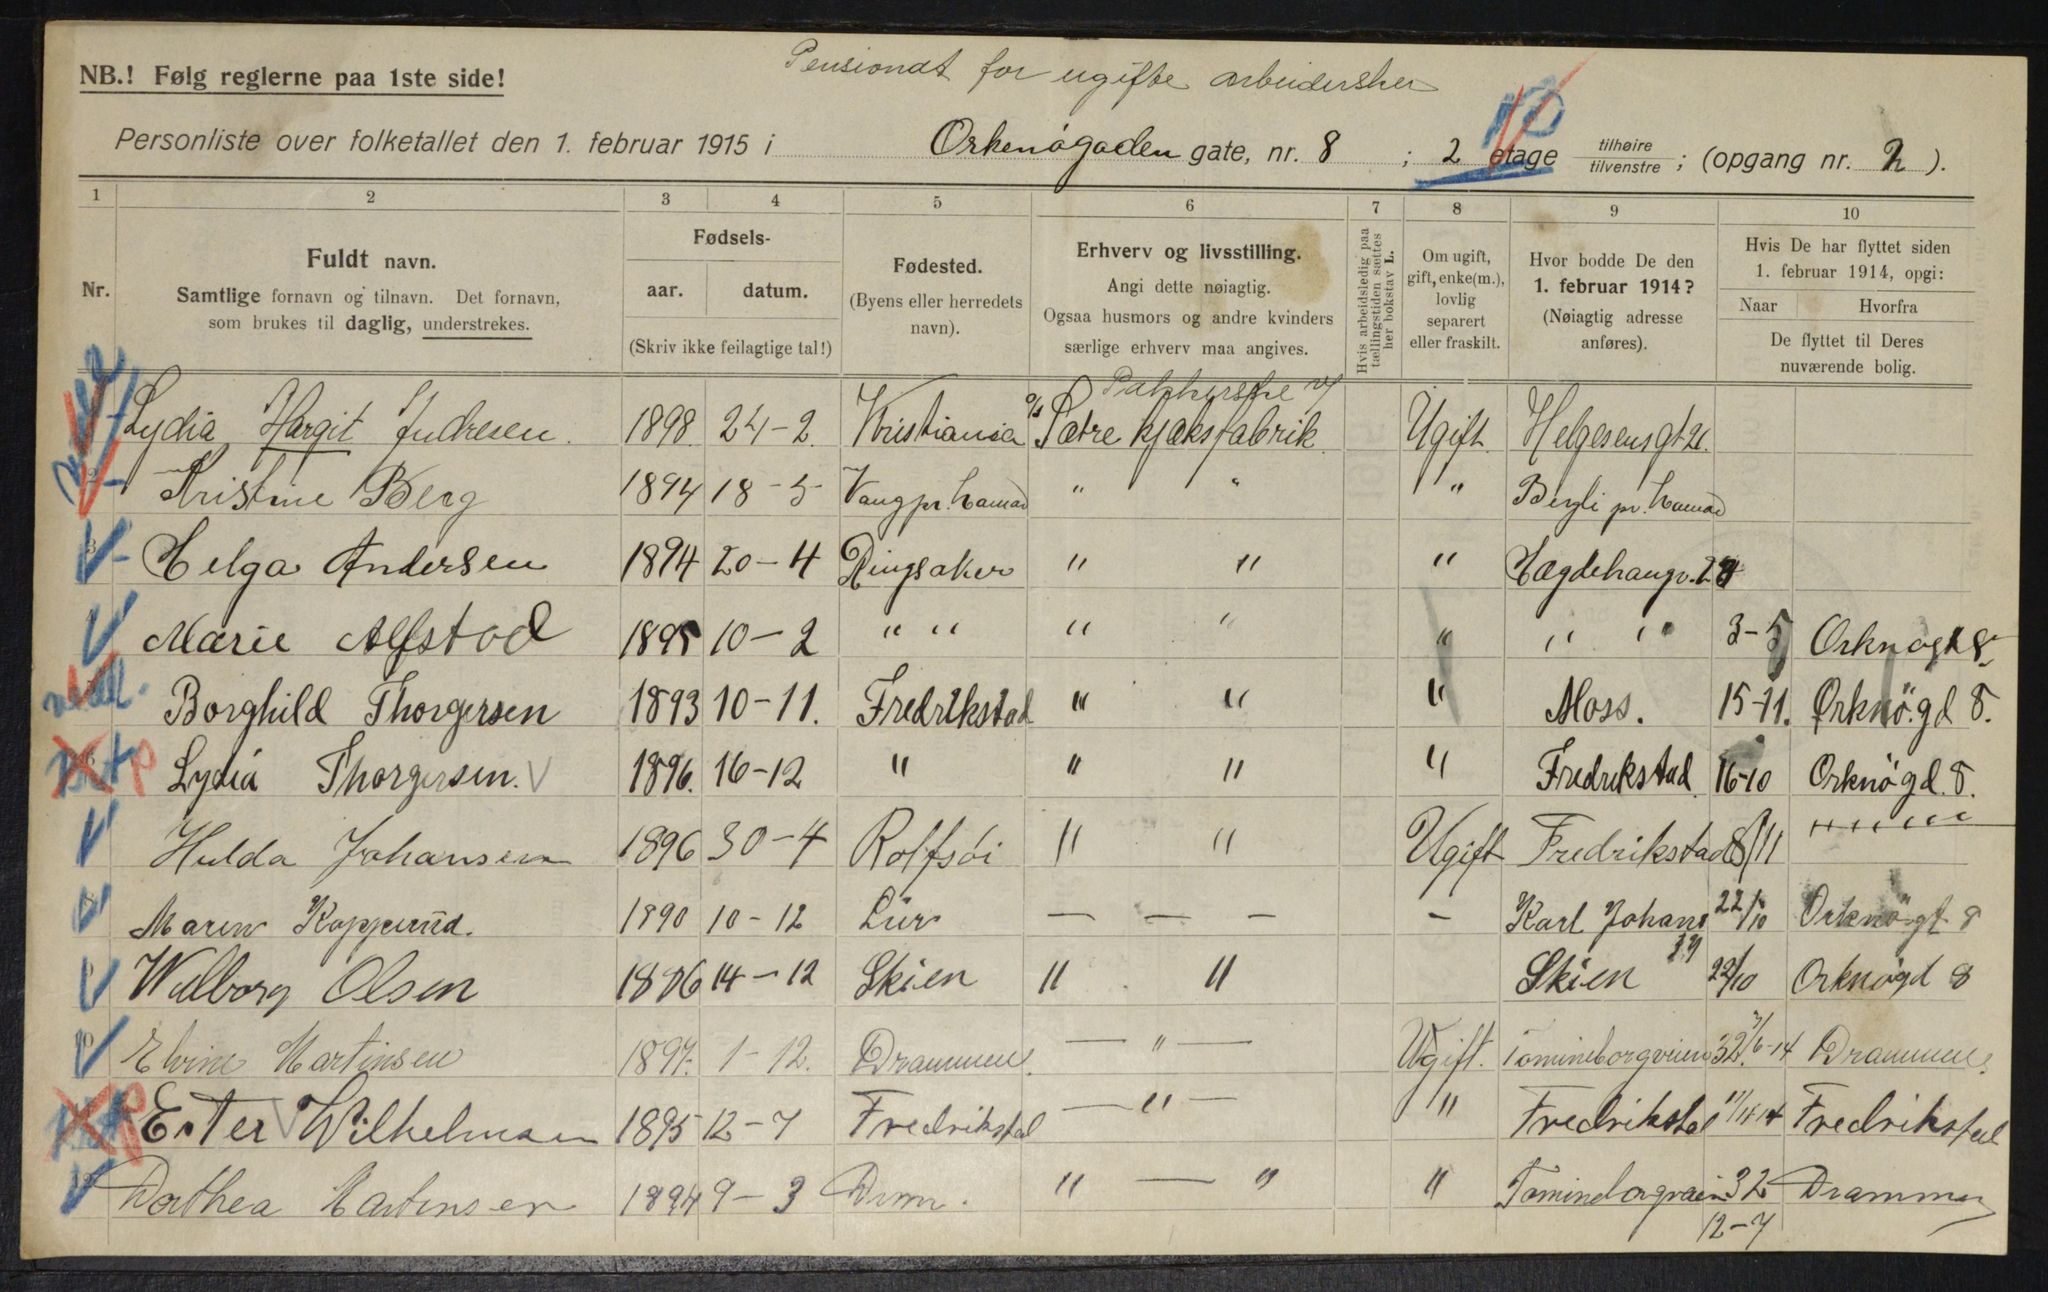 Pensionat for ugifte arbeidersker
NB.! Følg reglerne paa 1ste side!
Personliste over folketallet den 1. februar 1915 i Orkenøgaden gate, nr. 8 ; 2 etage tilhøire tilvenstre ; (opgang nr. 2 ).
1 2 3 4 5 6 7 8 9 10
Nr. Fuldt navn. Samtlige fornavn og tilnavn. Det fornavn, som brukes til daglig, understrekes.
Fødsels- aar. datum. (Skriv ikke feilagtige tal!)
Fødested. (Byens eller herredets navn).
Erhverv og livsstilling. Angi dette nøiagtig. Ogsaa husmors og andre kvinders særlige erhverv maa angives.
Hvis arbeidsledig paa tællingstiden sættes her bokstav L.
Om ugift, gift, enke(m.), lovlig separert eller fraskilt.
Hvor bodde De den 1. februar 1914? (Nøiagtig adresse anføres).
Hvis De har flyttet siden 1. februar 1914, opgi: Naar Hvorfra De flyttet til Deres nuværende bolig.
Pakkerske v/
Lydia Hargit Andresen. 1898. 24-2. Kristiania a/s Sætre kjæksfabrik Ugift. Helgesensgt 21.
2 Kristine Berg 1894 18-5 Vang pr. Hamar " " " Bergli pr. Hamar
3 Helga Andersen 1894 20-4 Ringsaker " " " Hægdehaugv.
Marie Alfstad 1895 10-2 " " " " " " " 3-5 Orknøgt 8
Borghild Thorgersen 1893 10-11. Fredrikstad " " " Moss. 15-11. Orknö.gd 8.
6 Lydia Thorgersen. V 1896. 16-12 " " " " Fredrikstad 16-10 Orknögd. 8.
Hulda Johansen 1896 30-4 Rolfsøi " " Ugift Fredrikstad 8/11 " " " " " "
8 Maren Kopperud. 1890 10-12 Lier — — — - Karl Johans 22/10 Orknøgt 8
Willborg Olsen 14-12 Skien " " Skien 22/10 Orknøgd 8
10 Elvine Martinsen 1897. 1-12. Drammen. — " — Ugift. Tomineborgveien 32. Drammen.
Ester V Wilhelmsen 1895 12-7 Fredrikstad — " — " Fredrikstad Fredrikstad
12 Dorthea Martinsen 1894 9-3 Drm. " — " " Tomineborgveien 32 Drammen
12-7